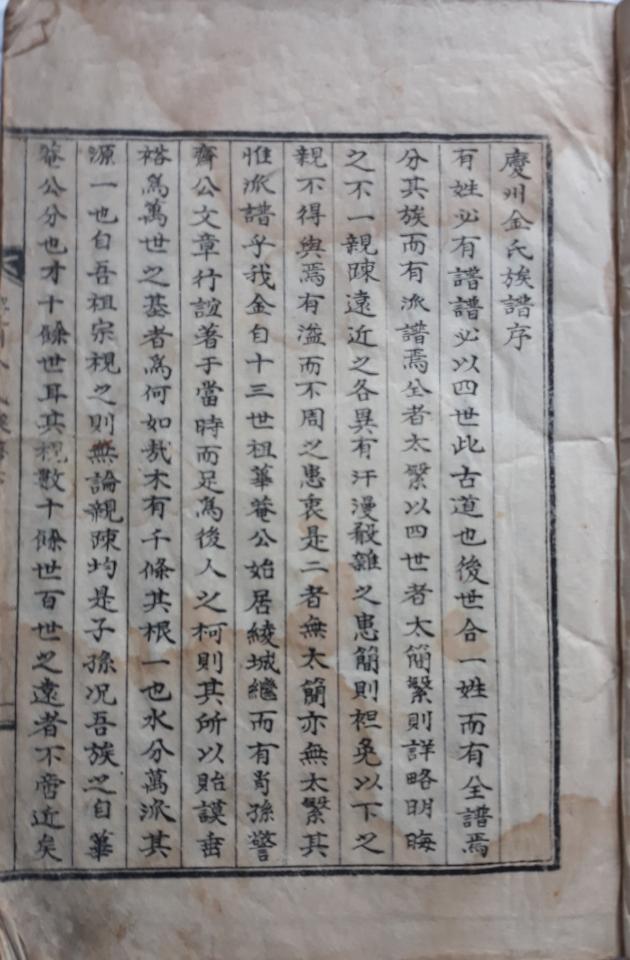 慶州金氏族譜序
有姓必有譜譜必以四世此古道也後世合一姓而有全譜焉
分其族而有派譜焉全者太繁以四世者太簡繁則詳略明晦
之不一親踈遠近之各異有汗漫殽雜之患簡則袒免以下之
親不得與焉有溢而不周之患衷是二者無太簡亦無太繁其
惟派譜乎我金自十三世祖華菴公始居綾城繼而有肖孫警
齋公文章行誼著于當時而足爲後人之柯則其所以貽謨垂
裕爲萬世之基者爲何如哉木有千條其根一也水分萬派其
源一也自吾祖宗視之則無論親踈均是子孫况吾族之自華
菴公分也才十餘世耳其視數十餘世百世之遠者不啻近矣